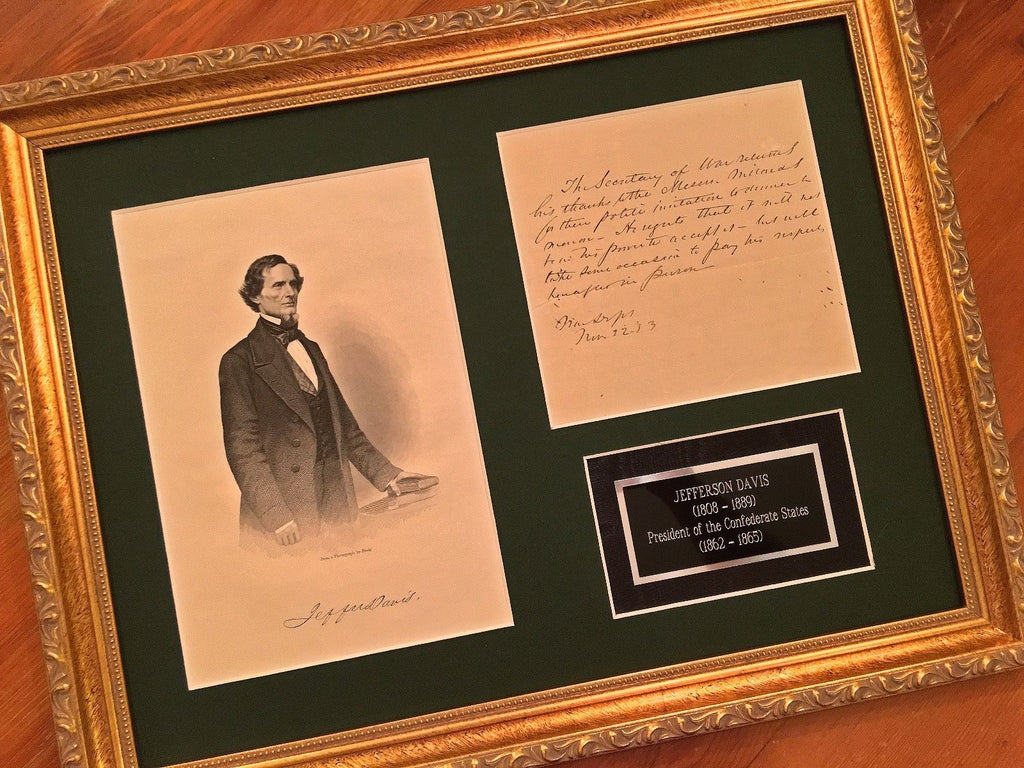 From a Photograph by Brady
Jeff'n Davis.
The Secretary of War returns
his thanks to the Messrs
for their polite invitation to dinner to
morrow - He regrets that it will not
be in his power to accept it - but will
take some occasion to pay his respects
in person
Nov 22. 53
JEFFERSON DAVIS
(1808 - 1889)
President of the Confederate States
(1862 - 1865)